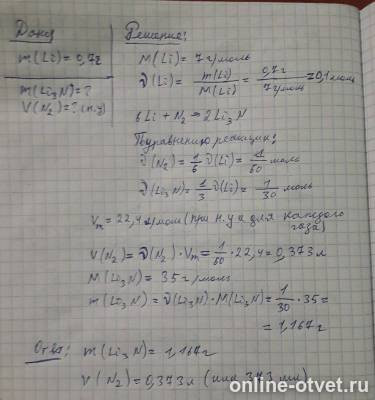 Дано
m(Li)=0,7г
m(Li₃N)=?
V(N₂)=?(н.у)
Решение:
M(Li)=7г/моль
ν(Li)=m(Li)/M(Li)=0,7г/7г/моль=0,1моль
6Li+N₂=2Li₃N
По уравнению реакции:
ν(N₂)=1/6ν(Li)=1/60 моль
ν(Li₃N)=1/3ν(Li)=1/30 моль
Vm=22,4л/моль(при н.у для каждого
газа)
V(N₂)=ν(N₂)·Vm=1/60·22,4=0,373л
M(Li₃N)=35г/моль
m(Li₃N)=ν(Li₃N)·M(Li₃N)=1/30·35=
=1,167г
Ответ: m(Li₃N)=1,167г
V(N₂)=0,373л(или 373 мл)
online-otvet.ru